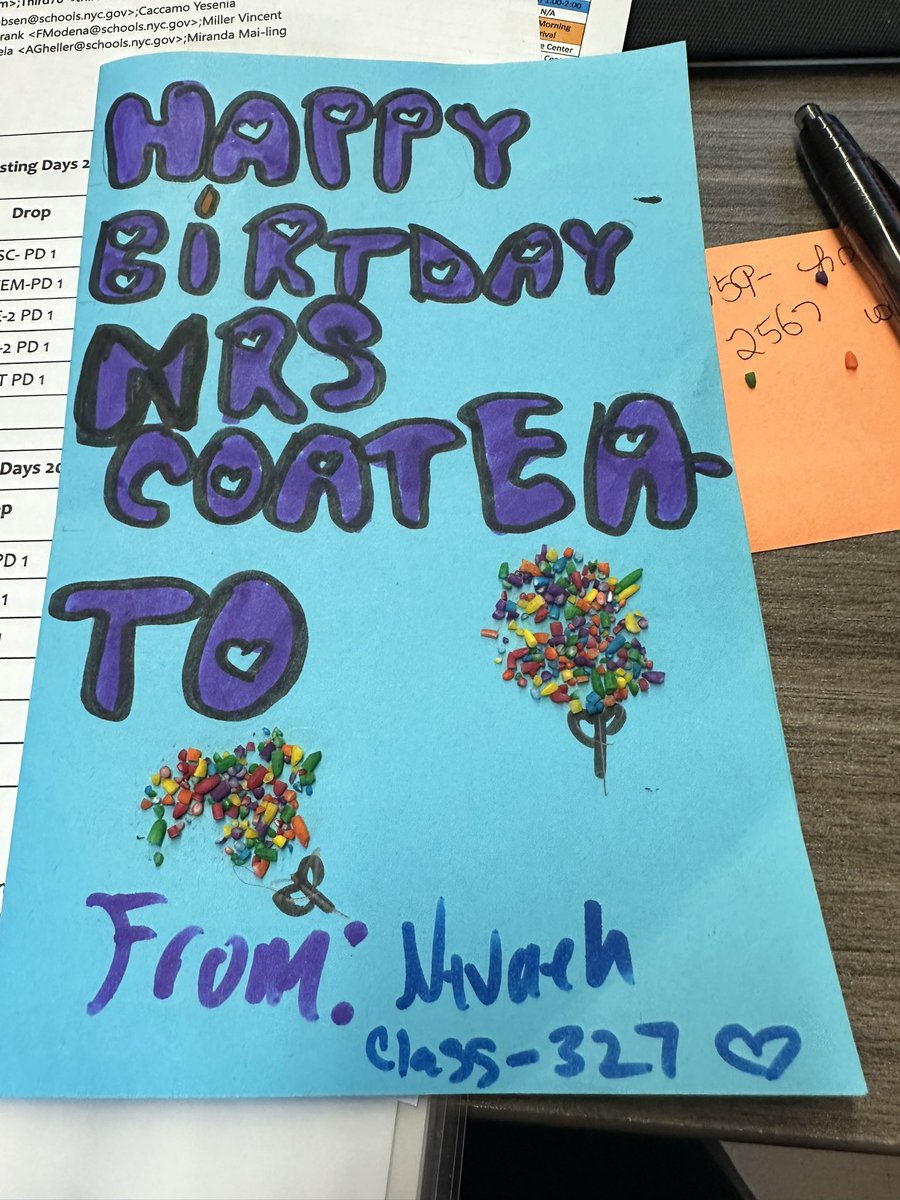 obsen@schools.nyc.gov>;Caccamo Yesenia
rank <FModena@schools.nyc.gov>;Miller Vincent
ela <AGheller@schools.nyc.gov>;Miranda Mai-ling
1:00-2:00
N/A
Morning
rival
e Center
sting Days 2
Drop
SC- PD 1
EM-PD 1
E-2 PD 1
-2 PD 1
T PD 1
Days 20
p
PD 1
1
HAPPY
BiRTDAY
MRS
COATEA-
TO
From: Nivaeh
Class-327
2567